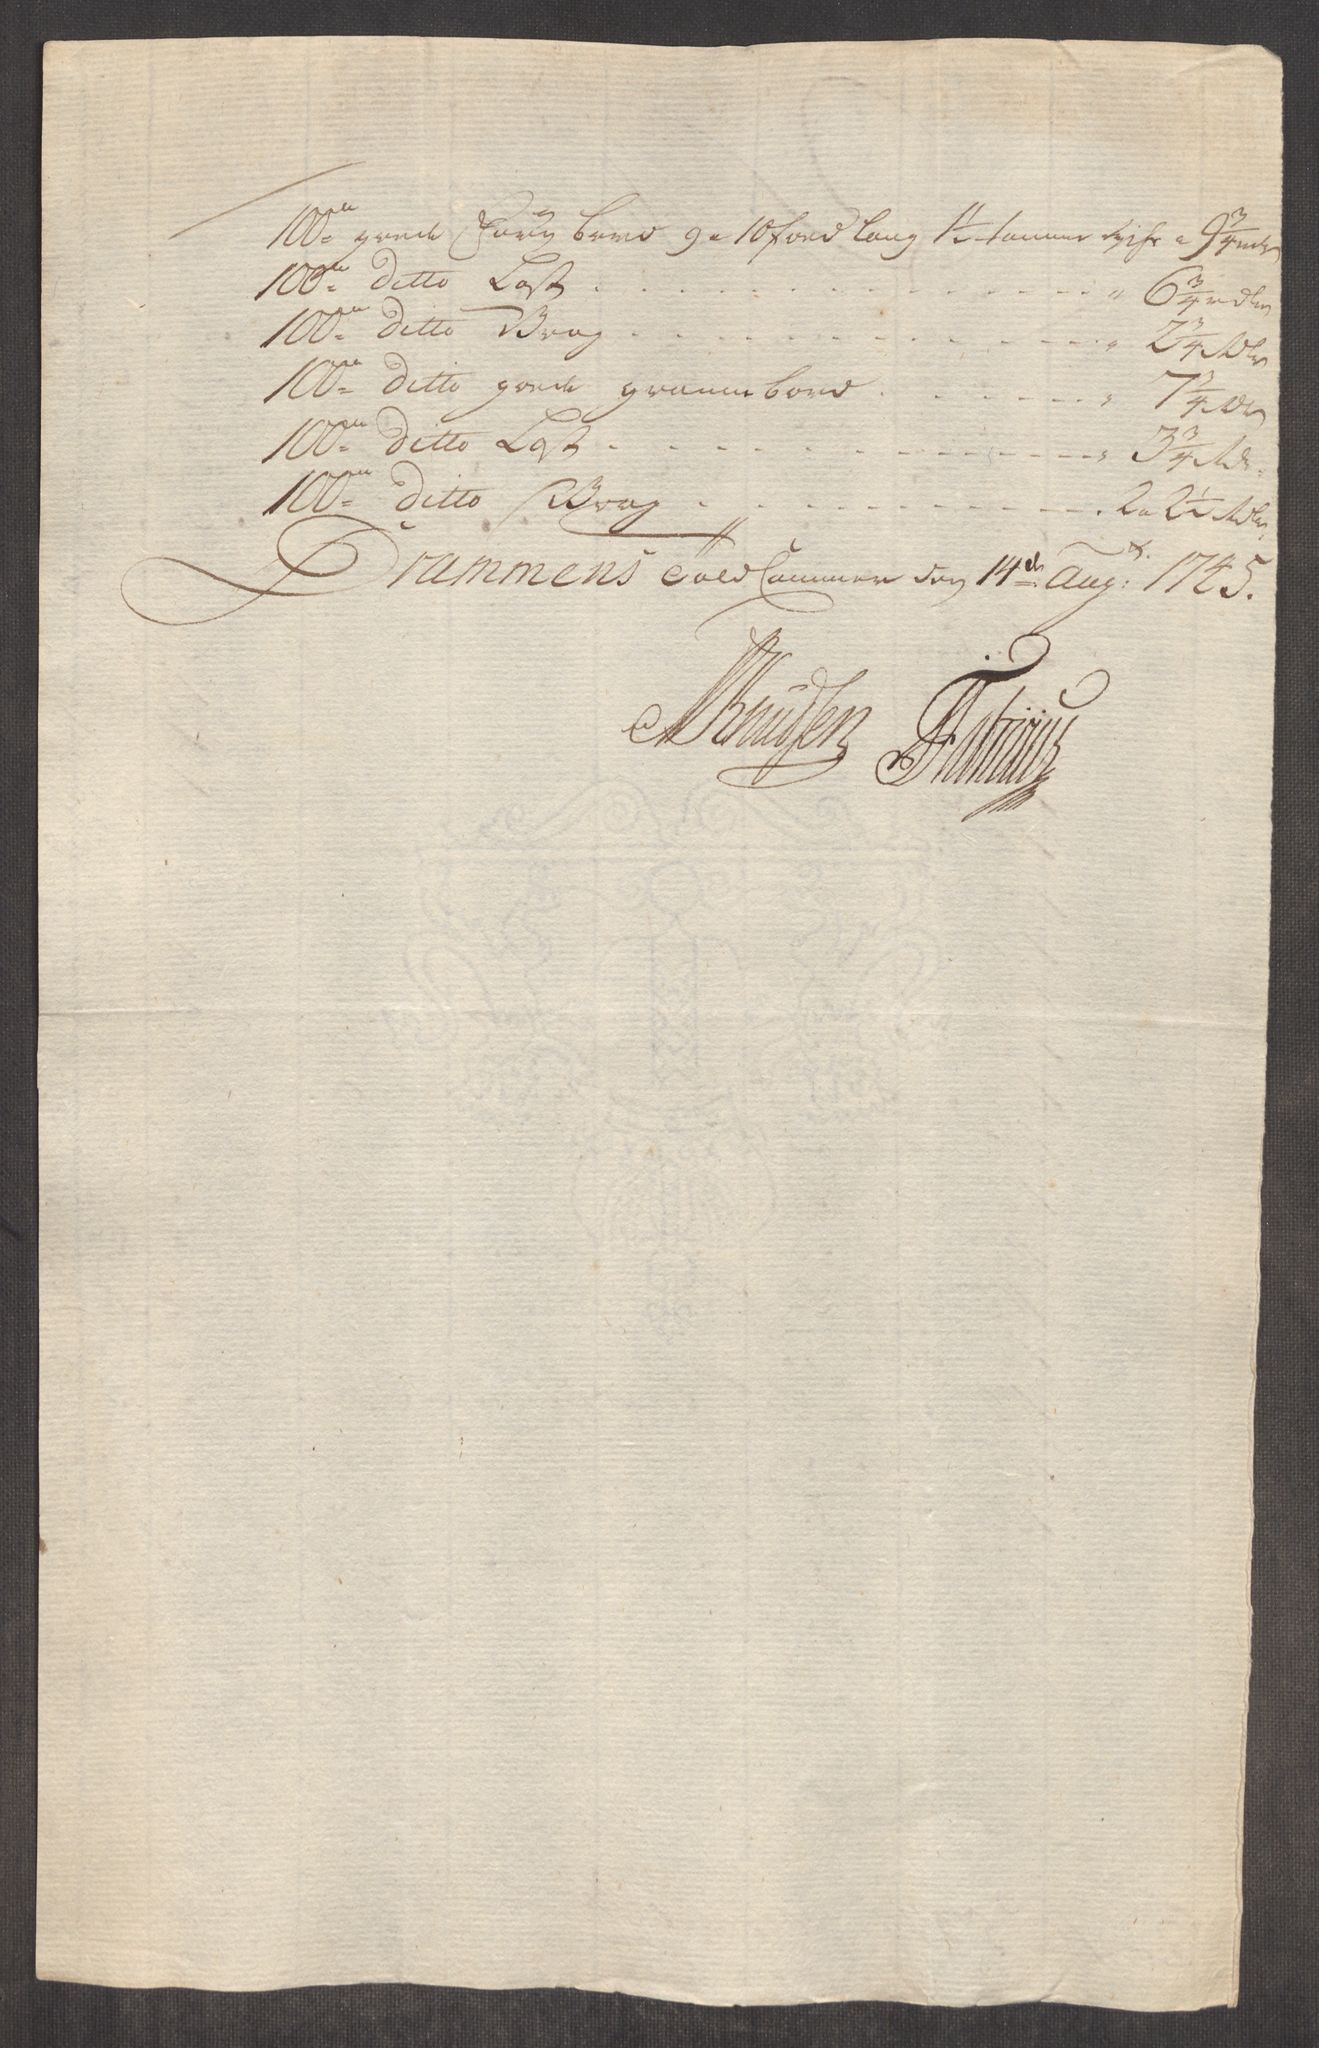 100de goede Furu bord 9 a 10 foed lang 1½ tommer tyk a 9¾ rdr
100de ditto Last . . . . . . . . " 6¾ rdlr
100de ditto Vrag . . . . . . . . " 2¾ Rdlr
100de ditto goede granne bord . . . . . . " 7¾ Rdr
100de ditto Last . . . . . . . . " 3¾ Rdr
100de ditto Vrag . . . . . . . . 2 a 2½ Rdlr
Drammens Told Cammer den 14de Aug: 1745.
NKnudsen Fabricius